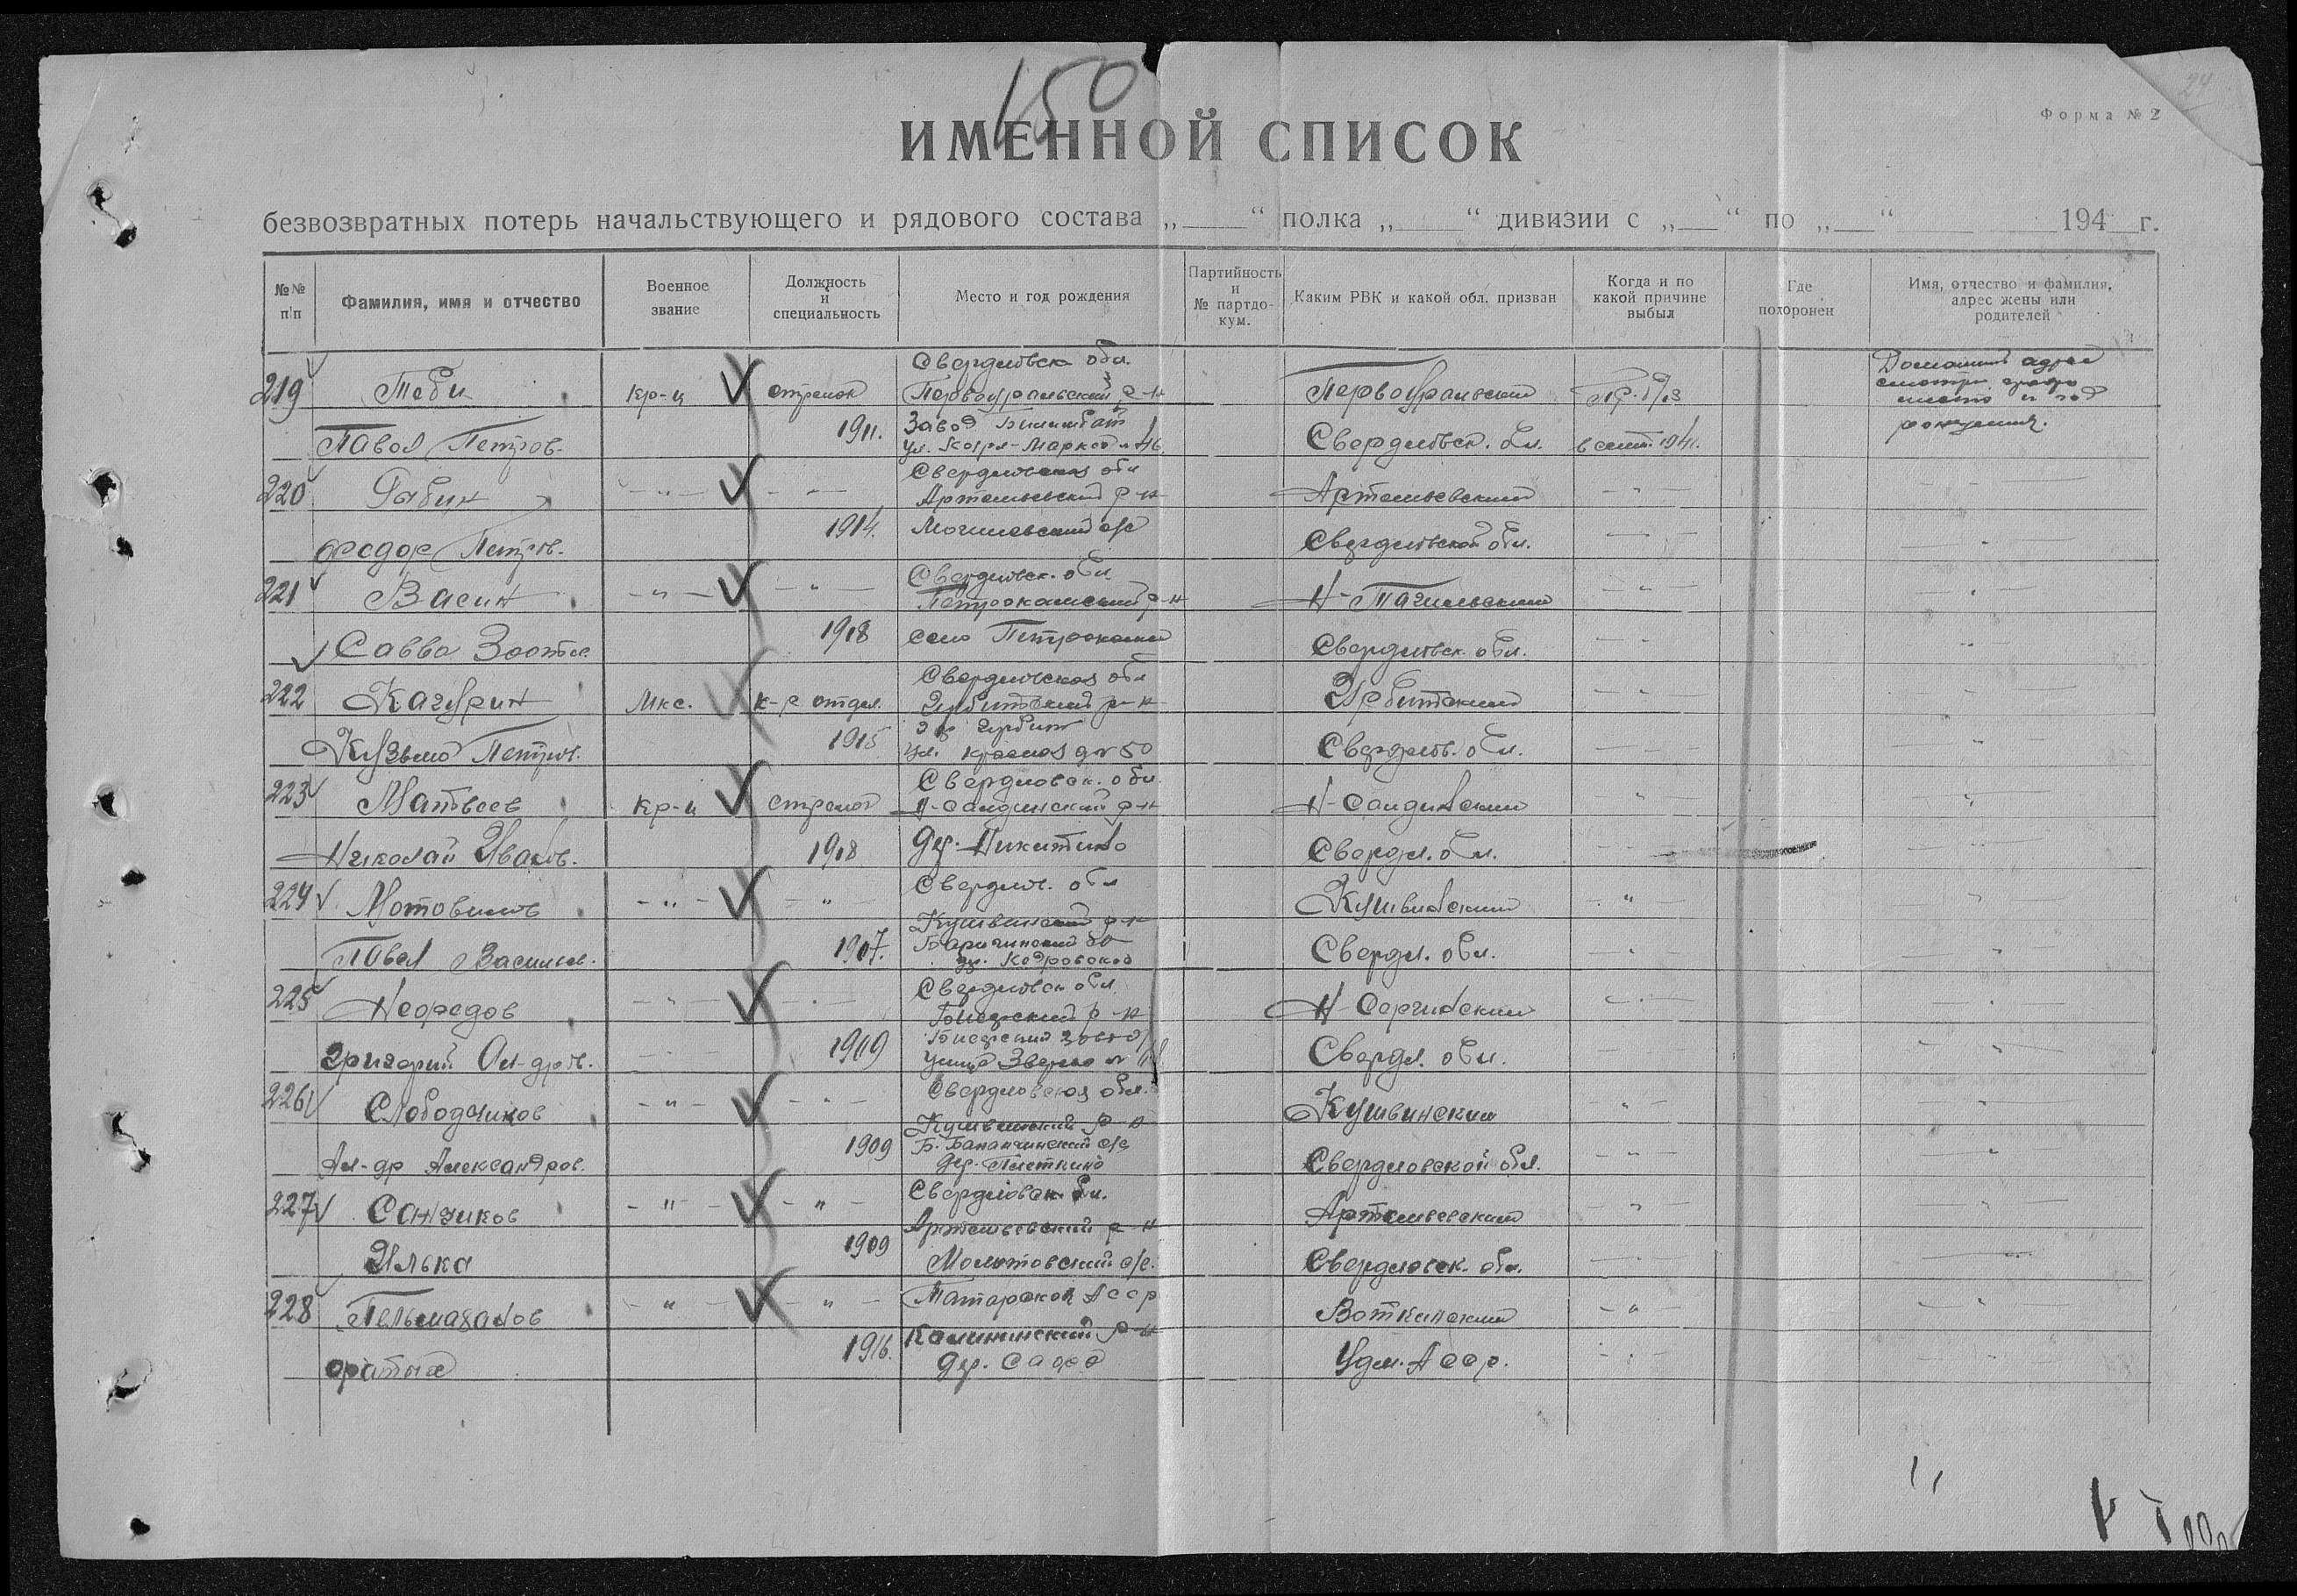 150
24
Форма № 2
ИМЕННОЙ СПИСОК
безвозвратных потерь начальствующего и рядового состава „ “ полка „ “ дивизии с „ “ по „ “ 194 г.
№№ п/п
Фамилия, имя и отчество
Военное звание
Должность и специальность
Место и год рождения
Партийность и № партдокум.
Каким РВК и какой обл. призван
Когда и по какой причине выбыл
Где похоронен
Имя, отчество и фамилия, адрес жены или родителей
Свердловск обл.
219 кр-ц стрелок Первоуральский р-н Первоуральский Пр. б/из
Домашний адрес смотри графу место и год рождения.
Павел Петров. 1911. Завод Билимбай Свердловск. обл. в сент. 1941.
ул. Карл-Маркса 46
Свердловская обл
220 Рабин - " - - " - Артемьевский р-н Артемьевский
Федор Петров. 1914. с/с Свердловской обл.
Свердловск. обл.
221 Васин - " - - " - Петрокаменский р-н Н-Тагильский
Савва Зоотее 1918 село Петрокамен Свердловск. обл.
Свердловская обл
222 Качурин Мкс. к-р отдел. Ирбитский р-н Ирбитский
Кузьма Петров. 1915 г. Ирбит Свердлов. обл.
ул. Красная д № 50
Свердловск. обл.
223 Матвеев Кр-ц стрелок Н-Салдинский р-н Н-Салдинский
Николай Иванов. 1918 дер. Никитино Свердл. обл.
Свердлов. обл
224 Мотовилов - " - - " Кушвинский р-н Кушвинский - " -
Павел Васильев. 1907. Свердл. обл.
Свердловск обл.
225 Нефедов - " - - " - Бисерский р-н Н-Сергинский
Григорий Ал-дров. 1909 Бисерский завод Свердл. обл.
улица
Свердловская обл.
226 Слободчиков - " - - " - Кушвинский р-н Кушвинский - " -
Ал-др Александров. 1909 Б. Баранчинский с/с Свердловской обл. - " -
дер. Плеткино
Свердловск. обл.
227 Санчиков - " - - " - Артемьевский р-н Артемьевский - " -
Илька 1909 Молотовский с/с. Свердловск. обл.
228 Тельмазанов - " - - " - Татарской АССР Воткинский - " -
1916. Калининский р-н Удм. АССР.
дер.